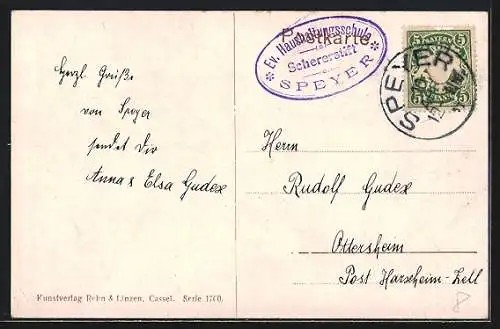 Postkarte
Ev. Haushaltungsschule
Schererstift
SPEYER
BAYERN
5 5
5 5
PFENNIG
SPEYER
Herzl. Grüße
von Speyer
sendet Dir
Anna & Elsa Gudex
Herrn
Rudolf Gudex
Ottersheim
Post Harxheim-Zell
Kunstverlag Rehn & Linzen, Cassel. Serie 1760.
8